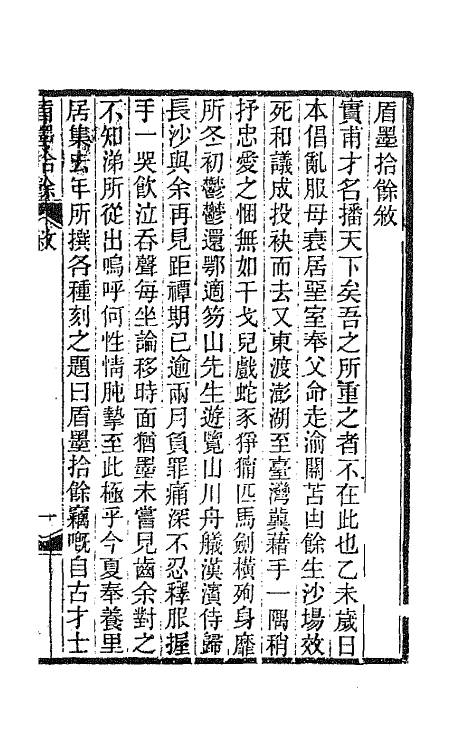 盾墨拾餘敘
實甫才名播天下矣吾之所重之者不在此也乙未歲日
本倡亂服母衰居堊室奉父命走渝關苫甴餘生沙場效
死和議成投袂而去又東渡澎湖至臺灣冀藉手一隅稍
抒忠愛之悃無如干戈兒戲蛇豕猙獰匹馬劍橫殉身靡
所冬初鬱鬱還鄂適笏山先生遊覽山川舟艤漢濱侍歸
長沙與余再見距禫期已逾兩月負罪痛深不忍釋服握
手一哭飲泣吞聲每坐論移時面猶墨未嘗見齒余對之
不知涕所從出嗚呼何性情肫摯至此極乎今夏奉養里
居集去年所撰各種刻之題曰盾墨拾餘竊嘅自古才士
盾墨拾餘 敘 一